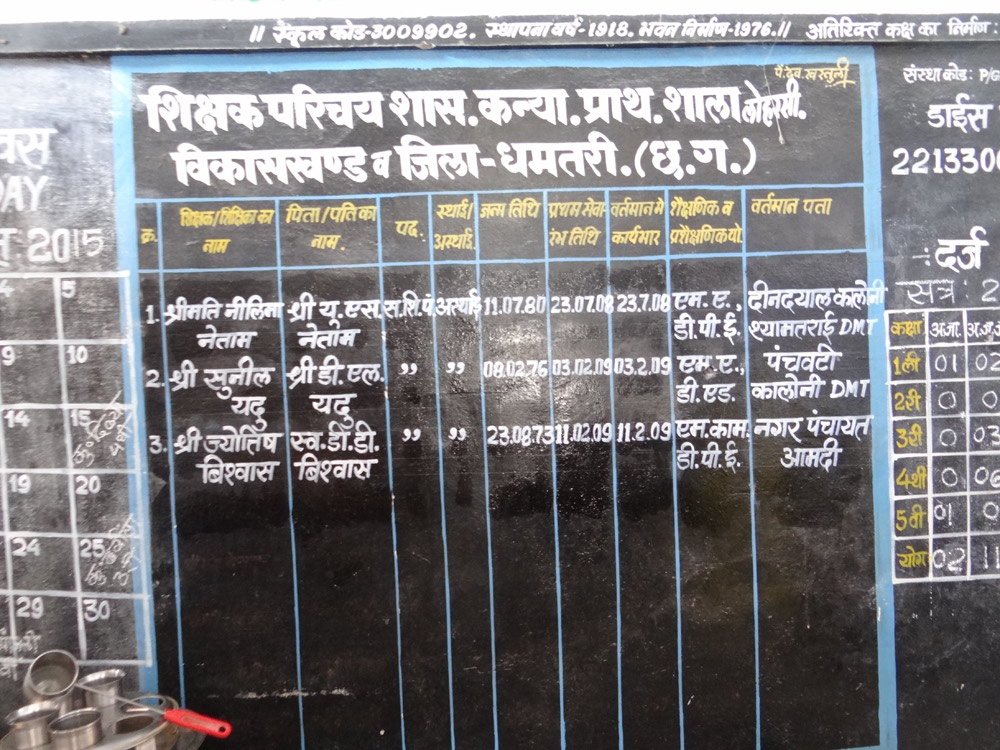 ॥ स्कूल कोड-3009902. स्थापना वर्ष-1918. भवन निर्माण-1976.॥ अतिरिक्त कक्ष का निर्माण:
शिक्षक परिचय शास. कन्या. प्राथ. शाला लोहरसी.
विकासखण्ड व जिला-धमतरी.(छ.ग.)
क्र. शिक्षक/शिक्षिका का नाम पिता/पति का नाम. पद. स्थाई/अस्थाई. जन्म तिथि प्रथम सेवारंभ तिथि वर्तमान मे कार्यभार शैक्षणिक व प्रशैक्षणिक यो. वर्तमान पता
1. श्रीमति नीलिमा श्री यु.एस. स.शि.पं अस्थाई 11.07.80 23.07.08 23.7.08 एम.ए., दीनदयाल कालोनी
नेताम नेताम डी.पी.ई. श्यामतराई DMT
2. श्री सुनील श्री डी.एल. ,, ,, 08.02.76 03.02.09 03.2.09 एम.ए., पंचवटी
यदु यदु डी.एड. कालोनी DMT
3. श्री ज्योतिष स्व.डी.डी. ,, ,, 23.08.73 11.02.09 11.2.09 एम.काम. नगर पंचायत
बिश्वास बिश्वास डी.पी.ई. आमदी
वस
DAY
2015
4 5
9 10
14 15
19 20
24 25
29 30
संस्था कोड: P/G
डाईस
221330
:दर्ज
सत्र: 2
कक्षा अ.जा. अ.ज.
1ली 01 02
2री 0 0
3री 0 03
4थी 0 06
5वी 01 0
योग 02 11